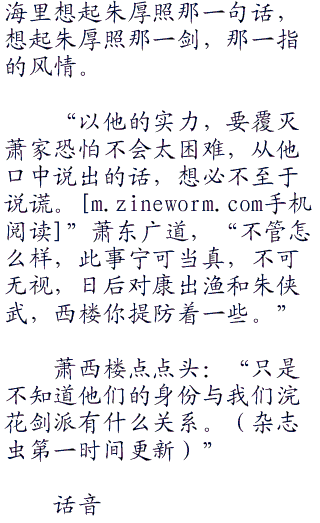 海里想起朱厚照那一句话，
想起朱厚照那一剑，那一指
的风情。
“以他的实力，要覆灭
萧家恐怕不会太困难，从他
口中说出的话，想必不至于
说谎。[m.zineworm.com手机
阅读]”萧东广道，“不管怎
么样，此事宁可当真，不可
无视，日后对康出渔和朱侠
武，西楼你提防着一些。”
萧西楼点点头：“只是
不知道他们的身份与我们浣
花剑派有什么关系。（杂志
虫第一时间更新）”
话音